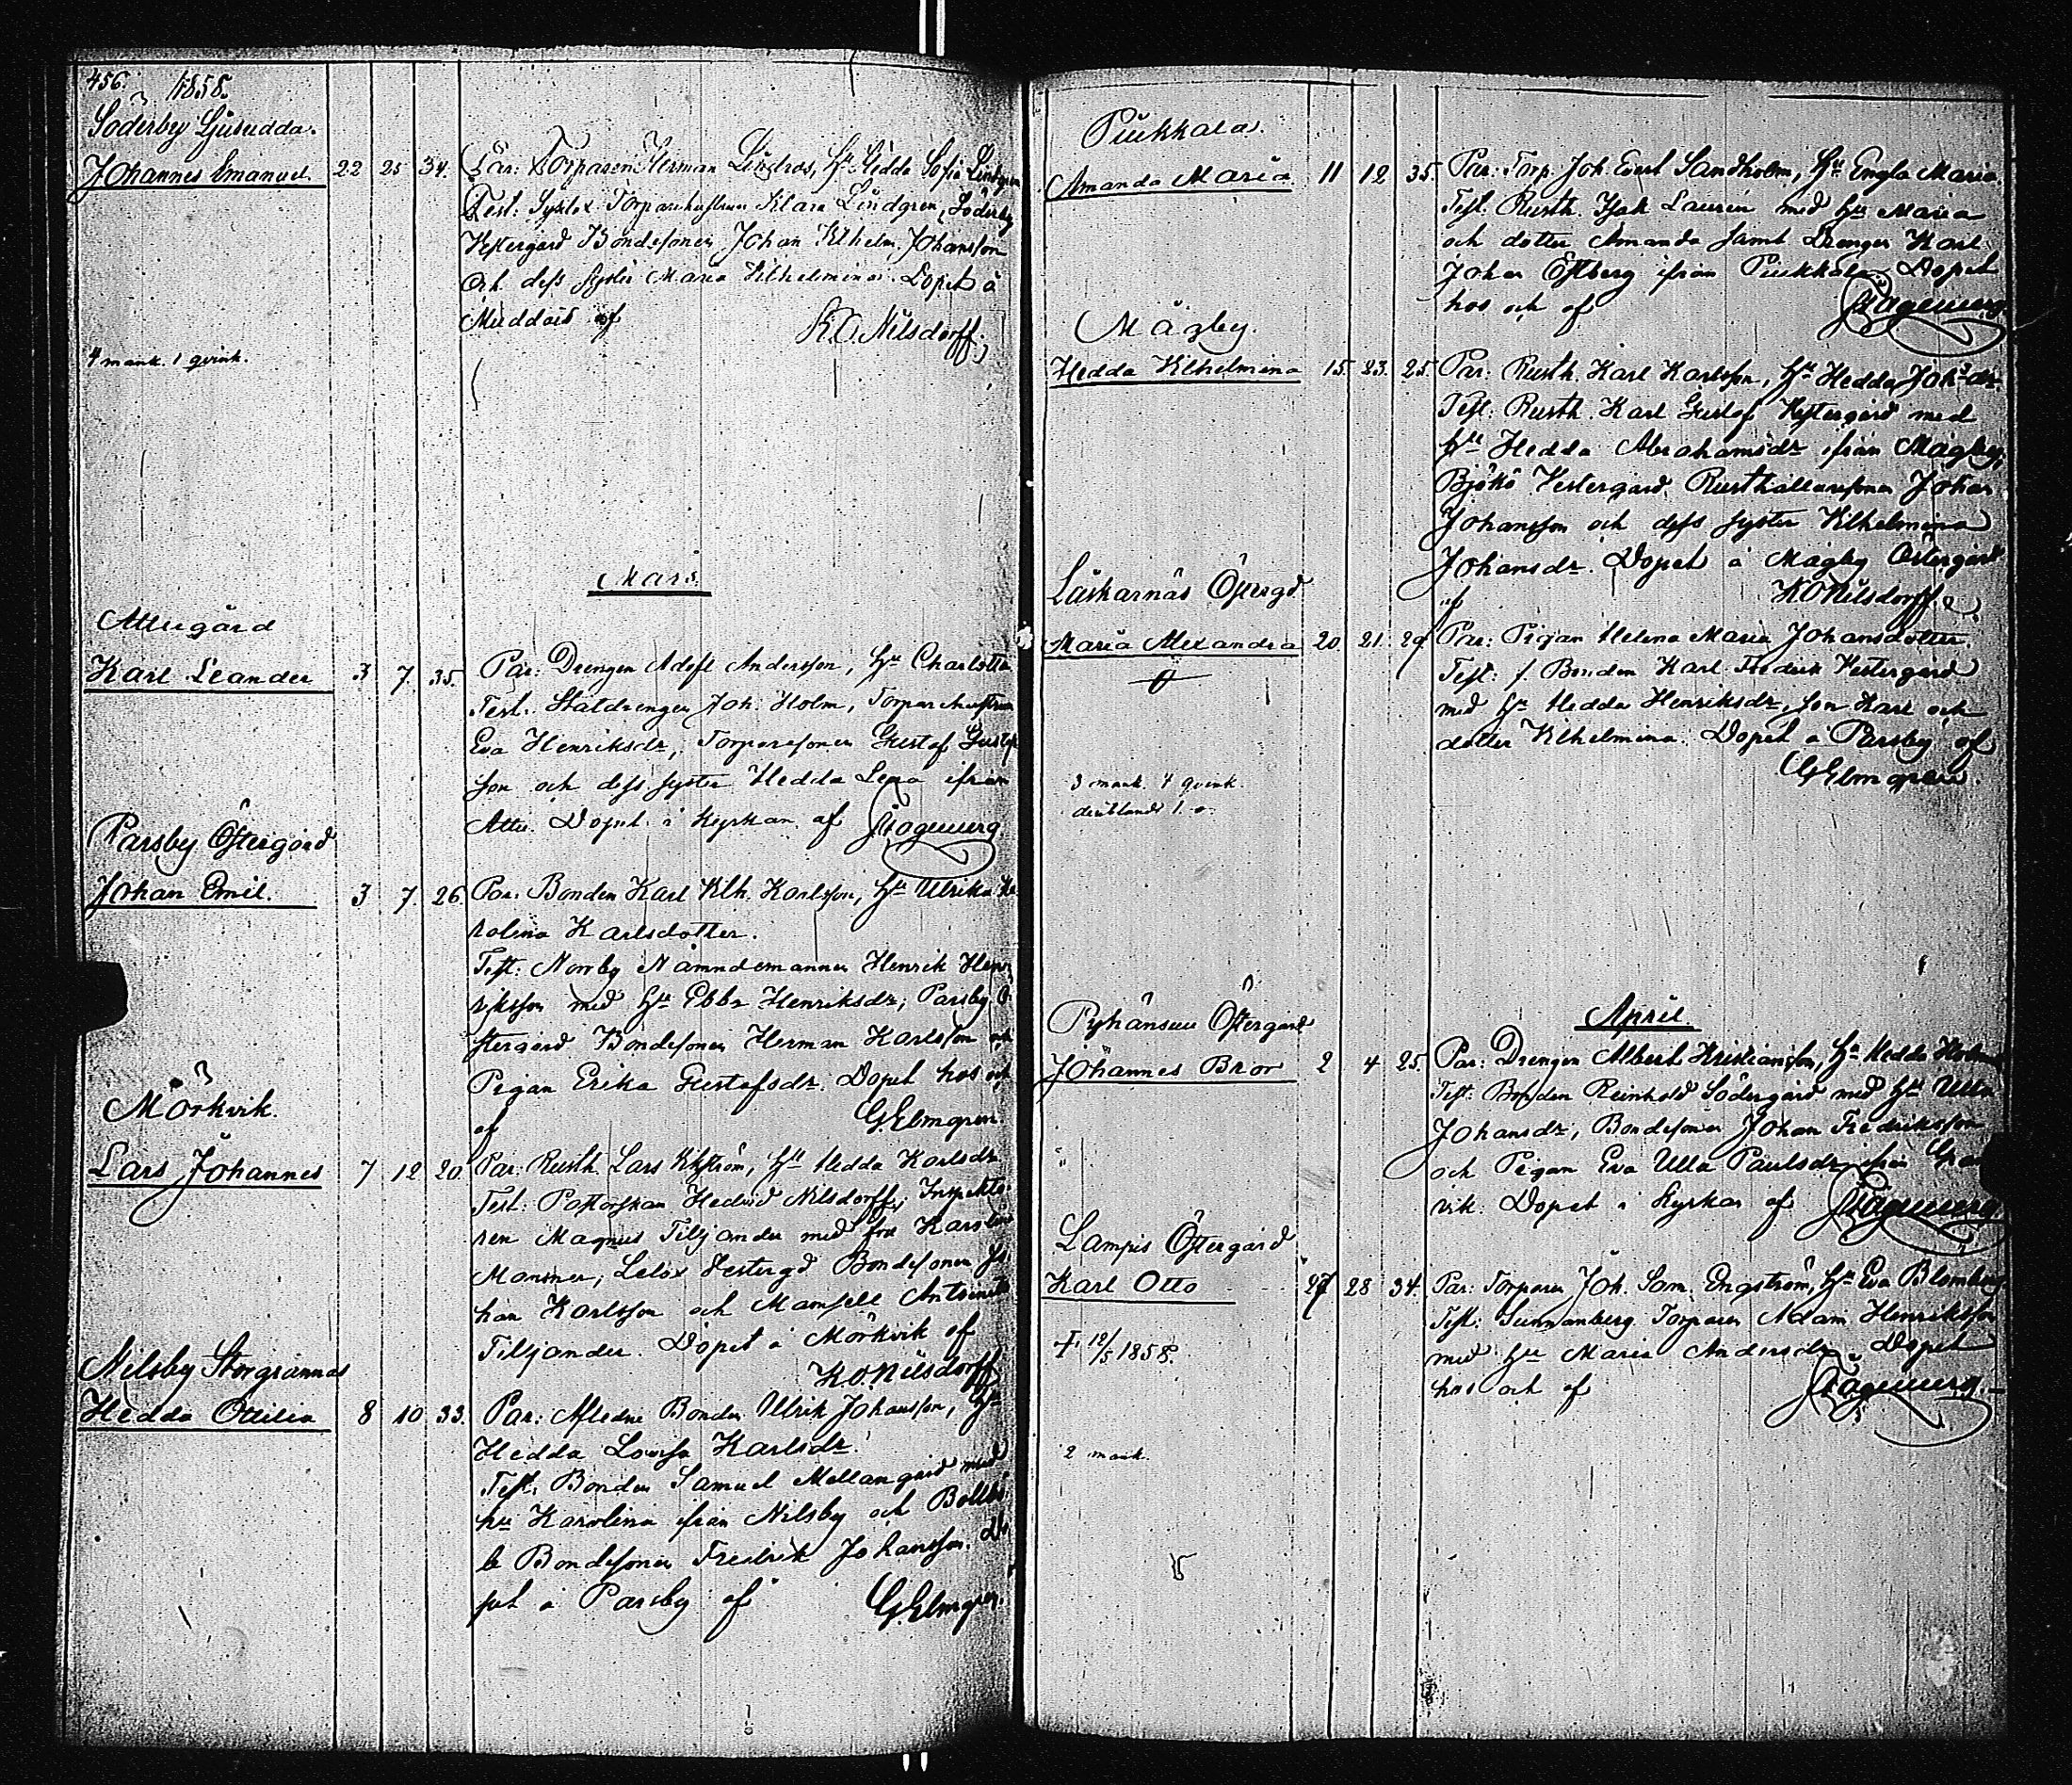 456. 1858.
Söderby Ljusudda.
Johannes Emanuel. 22 25 34. Par: Torparen Herman Lindros, Hu Hedda Sofia Lindgren
Test: Sysilax Torparehustrun Klara Lindgren, Söderby
Vestergård Bondesonen Johan Vilhelm Johansson
och dess syster Maria Vilhelmina. Döpet å
Muddais af K.O. Nilsdorff.
4 mank. 1 qvink.
Mars.
Attugård
Karl Leander 3 7. 35. Par: Drengen Adolf Andersson, Hu Charlotta
Test. Statdrengen Joh. Holm, Torparehustrun
Eva Henriksdr, Torparesonen Gustaf Gustafs
son och dess syster Hedda Lena ifrån
Attu. Döpet i Kyrkan af
Parsby Östergård
Johan Emil. 3 7. 26. Par: Bonden Karl Vilh. Karlsson, Hu Ulrika Ka
rolina Karlsdotter.
Test: Norrby Nämndemannen Henrik Hen
riksson med Hu Ebba Henriksdr, Parsby Ö
stergård Bondesonen Herman Karlsson och
Pigan Erika Gustafsdr. Döpet hos och
af G. Elmgren.
Mörkvik.
Lars Johannes 7 12 20. Par: Rusth. Lars Vikström, Hu Hedda Karlsdr.
Test: Pastorskan Hedvid Nilsdorff, Inspekto
ren Magnus Tiljander med fru Karolina
Monsner, Lelox Vestergd Bondesonen Jo
han Karlsson och Mamsell Antoinette
Tiljander. Döpet å Mörkvik af
K.O. Nilsdorff
Nilsby Storgrannas
Hedda Ottilia 8 10 33. Par: Afledne Bonden Ulrik Johansson, Hu
Hedda Lovisa Karlsdr.
Test: Bonden Samuel Mellangård med
hu Karolina ifrån Nilsby och Bollbö
le Bondesonen Fredrik Johansson. Dö
pet å Parsby af G. Elmgren.
Piukkala.
Amanda Maria 11 12 35. Par: Torp. Joh. Evert Sandholm, Hu Engla Maria.
Test: Rusth. Isak Laurén med Hu Maria
och dotter Amanda samt Drengen Karl
Johan Östberg ifrån Piukkala. Döpet
hos och af
Mågby.
Hedda Vilhelmina 15. 23. 25. Par: Rusth. Karl Karlsson, Hu Hedda Johsdr.
Test: Rusth. Karl Gustaf Vestergård med
hu Hedda Abrahamsdr ifrån Mågby,
Björkö Vestergård Rusthållaresonen Johan
Johansson och dess syster Vilhelmina
Johansdr. Döpet å Mågby Östergård
af K.O. Nilsdorff.
Läskarnäs Östergd
Maria Alexandra 20. 21. 29. Par: Pigan Helena Maria Johansdotter.
Test: f. Bonden Karl Fredrik Vestergård
med hu Hedda Henriksdr, son Karl och
dotter Vilhelmina. Döpet å Parsby af
G. Elmgren.
3 mank. 4 qvink.
deribland 1. o.
April.
Pyhänsuu Östergård
Johannes Bror 2 4 25. Par: Drengen Albert Kristiansson, Hu Hedda
Test: Bonden Reinhold Södergård med hu Ulla
Johansdr, Bondesonen Johan Fredriksson
och Pigan Eva Ulla Paulsdr ifrån Gran
vik. Döpet i Kyrkan af
Lampis Östergård
Karl Otto 27 28 34. Par: Torparen Joh. Sam. Engström, Hu Eva Blomberg
Test: Sunnanberg Torparen Adam Henriksson
med hu Maria Andersdr. Döpet
hos och af
† 12/5 1858.
2 mank.